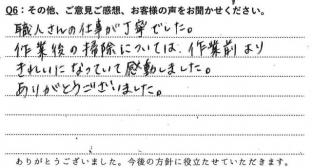 Q6：その他、ご意見ご感想、お客様の声をお聞かせください。
職人さんの仕事が丁寧でした。
作業後の掃除については、作業前より
きれいになっていて感動しました。
ありがとうございました。
ありがとうございました。今後の方針に役立たせていただきます。